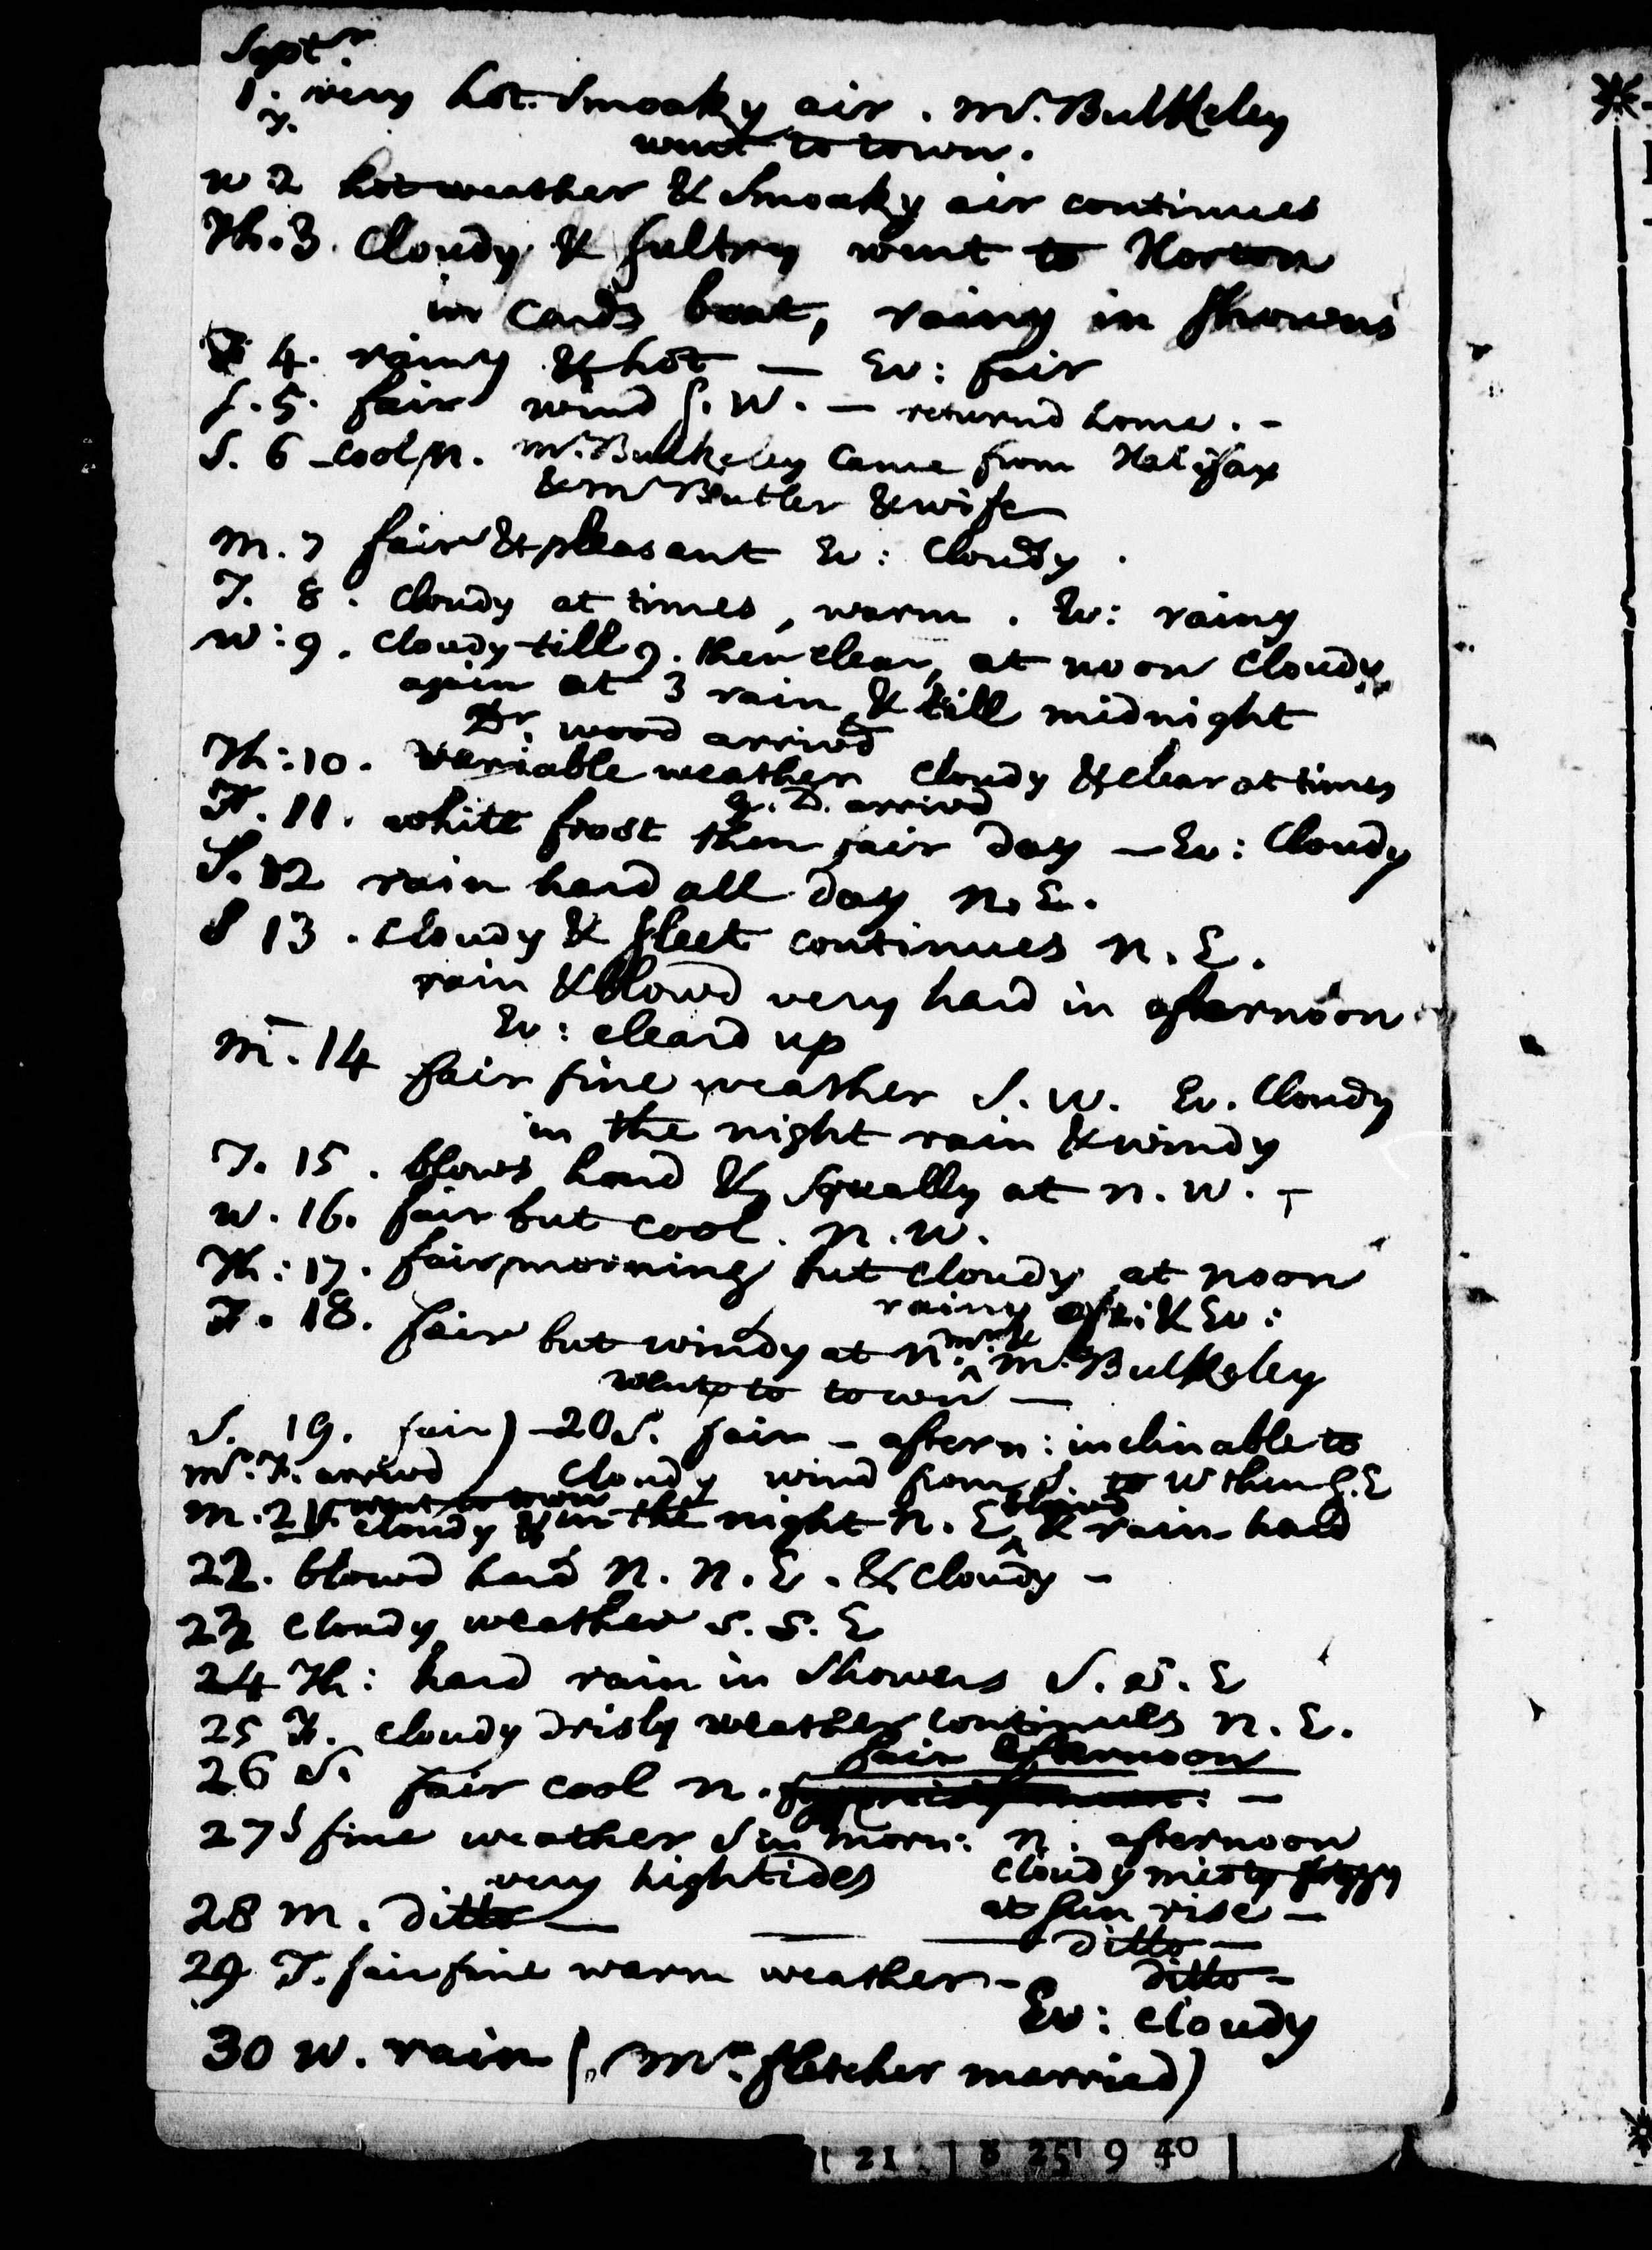 Septr.
1. very hot. Smoaky air. Mr. Bulkeley
T.
went to town.
W 2 hot weather & Smoaky air continues
Th. 3. Cloudy & sultry went to Horton
in Cards boat, rainy in showers
F 4. rainy & hot — Ev: fair
S. 5. fair wind S. W. — returnd home. -
S. 6 cool N. Mr. Bulkeley came from Halifax
& Mr Butler & wife
M. 7 fair & pleasant Ev: Cloudy.
T. 8. Cloudy at times, warm. Ev: rainy
W: 9. Cloudy till 9. then clear, at noon Cloudy
again at 3 rain, & till midnight
Dr. Wood arrivd
Th: 10. Variable weather Cloudy & clear at times
arrivd
F. 11. white frost then fair day — Ev: Cloudy
S. 12 rain hard all day N. E.
S 13. Cloudy & sleet continues N. E.
rain & blowd very hard in afternoon
Ev: cleard up
M. 14 fair fine weather S. W. Ev. Cloudy
in the night rain & windy
T. 15. blows hard & Squally at N. W. -
W. 16. fair but cool. N. W.
Th: 17. fair morning but cloudy at noon
rainy aft: & Ev:
F. 18. fair but windy at N. Mr. & Mrs. Bulkeley
went to town —
S. 19. fair) - 20 S. fair - aftern: inclinable to
Mr. F. arrivd Cloudy wind from S. to W then S. E
went to town
M. 21. cloudy & in the night N. E blowd & rain hard
22. blowd hard N. N. E. & Cloudy -
23 Cloudy weather S. S. E
24 Th: hard rain in Showers S. S. E
25 F. Cloudy drisly weather continues N. E.
fair afternoon
26 S. fair cool N. —
27 S fine weather S in morn: N. afternoon
very high tides Cloudy misty foggy
at sun rise —
28 M. ditto — — — ditto —
29 T. fair fine warm weather - ditto -
Ev: cloudy
30 W. rain (Mr. Fletcher married)
21 8 25 9 40